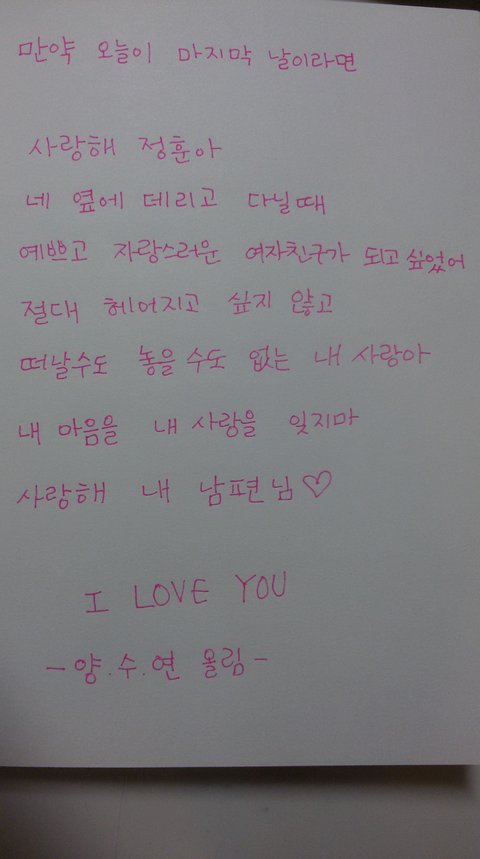 만약 오늘이 마지막 날이라면
사랑해 정훈아
네 옆에 데리고 다닐때
예쁘고 자랑스러운 여자친구가 되고싶었어
절대 헤어지고 싶지 않고
떠날수도 놓을수도 없는 내 사랑아
내 마음을 내 사랑을 잊지마
사랑해 내 남편님♡
I LOVE YOU
-양.수.연 올림-